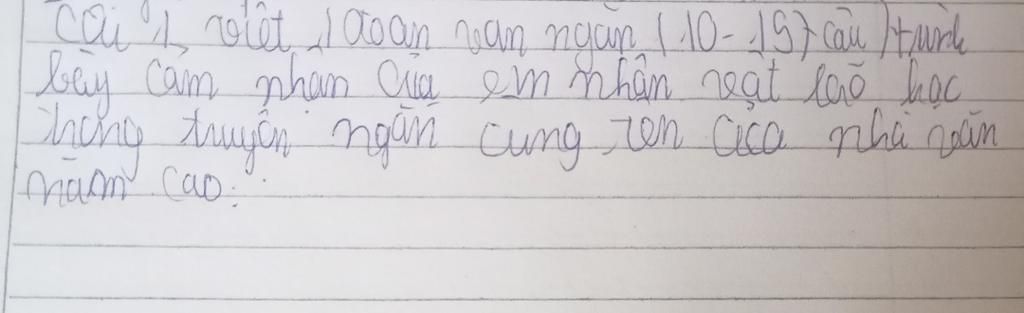 Câi 1, viết 1 đoạn văn ngắn (10-15) câu) trình
bày cảm nhận của em nhân vật lão hạc
trong truyện ngắn cung tên của nhà văn
nam cao.